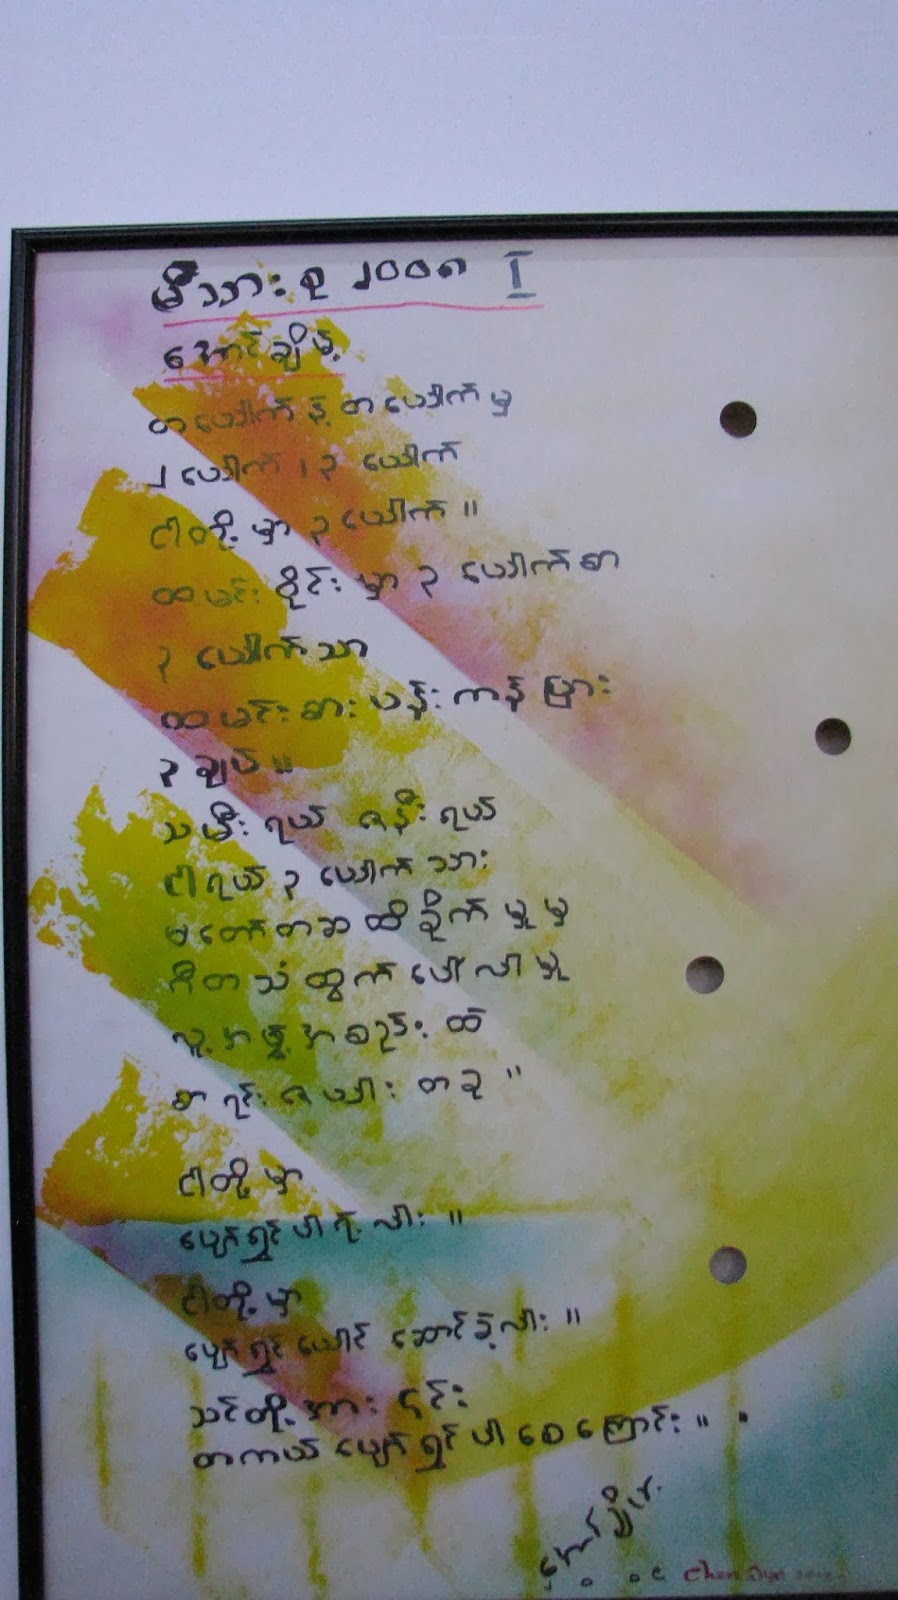 မိသားစု ၂၀၀၈ I
အောင်ချိမ့်
တယောက်နဲ့ တယောက်မှ
၂ ယောက် ၊ ၃ ယောက်
ငါတို့မှာ ၃ ယောက် ။
ထမင်းဝိုင်းမှာ ၃ ယောက်စာ
၃ ယောက်သာ
ထမင်းစား ပန်းကန်ပြား
၃ ချပ် ။
သမီးရယ် ဇနီးရယ်
ငါရယ် ၃ ယောက်သား
မတော်တဆ ထိခိုက်မှုမှ
ဂီတသံ ထွက်ပေါ်လာမှု
လူ့အဖွဲ့အစည်းထဲ
စာရင်းဇယားတခု "
ငါတို့မှာ
ပျော်ရွှင်ပါရဲ့လား ။
ငါတို့မှာ
ပျော်ရွှင်ယောင် ဆောင်ခဲ့လား ။
သင်တို့အား ၎င်း
တကယ် ပျော်ရွှင်ပါစေကြောင်း ။ ။
အောင်ချိမ့်